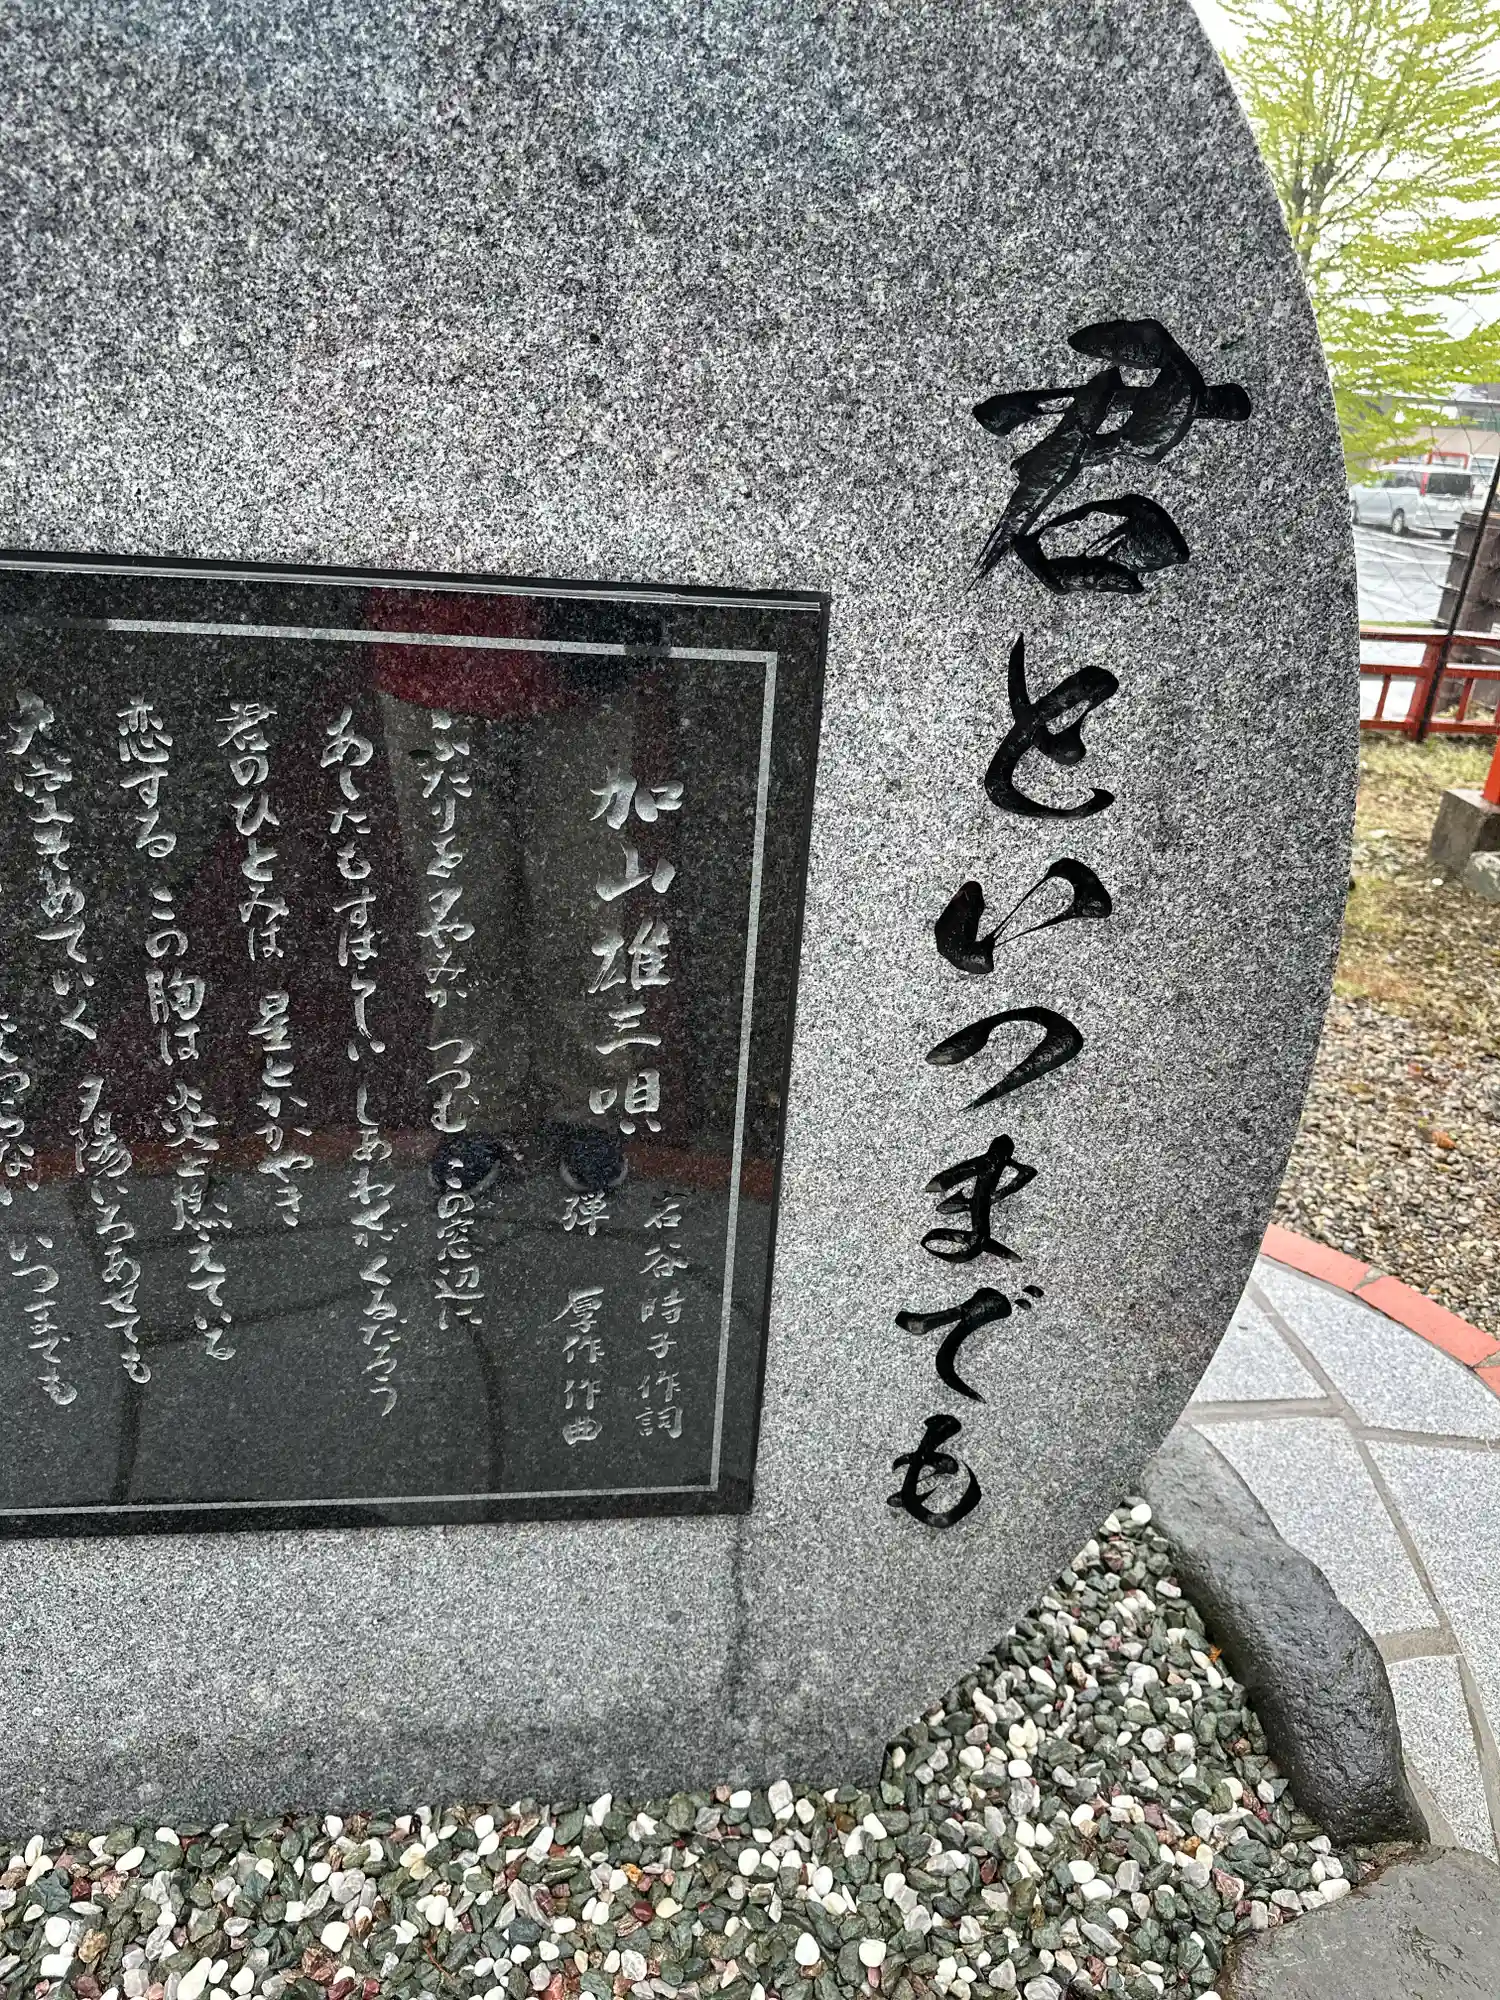 君といつまでも
加山雄三唄
岩谷時子作詞
弾 厚作作曲
ふたりをゆやみが つつむ この窓辺に
あしたもすばらしい しあわせがくるだろう
君のひとみは 星とかがやき
恋する この胸は 炎と燃えている
大空そめていく 夕陽いろあせても
いつまでも